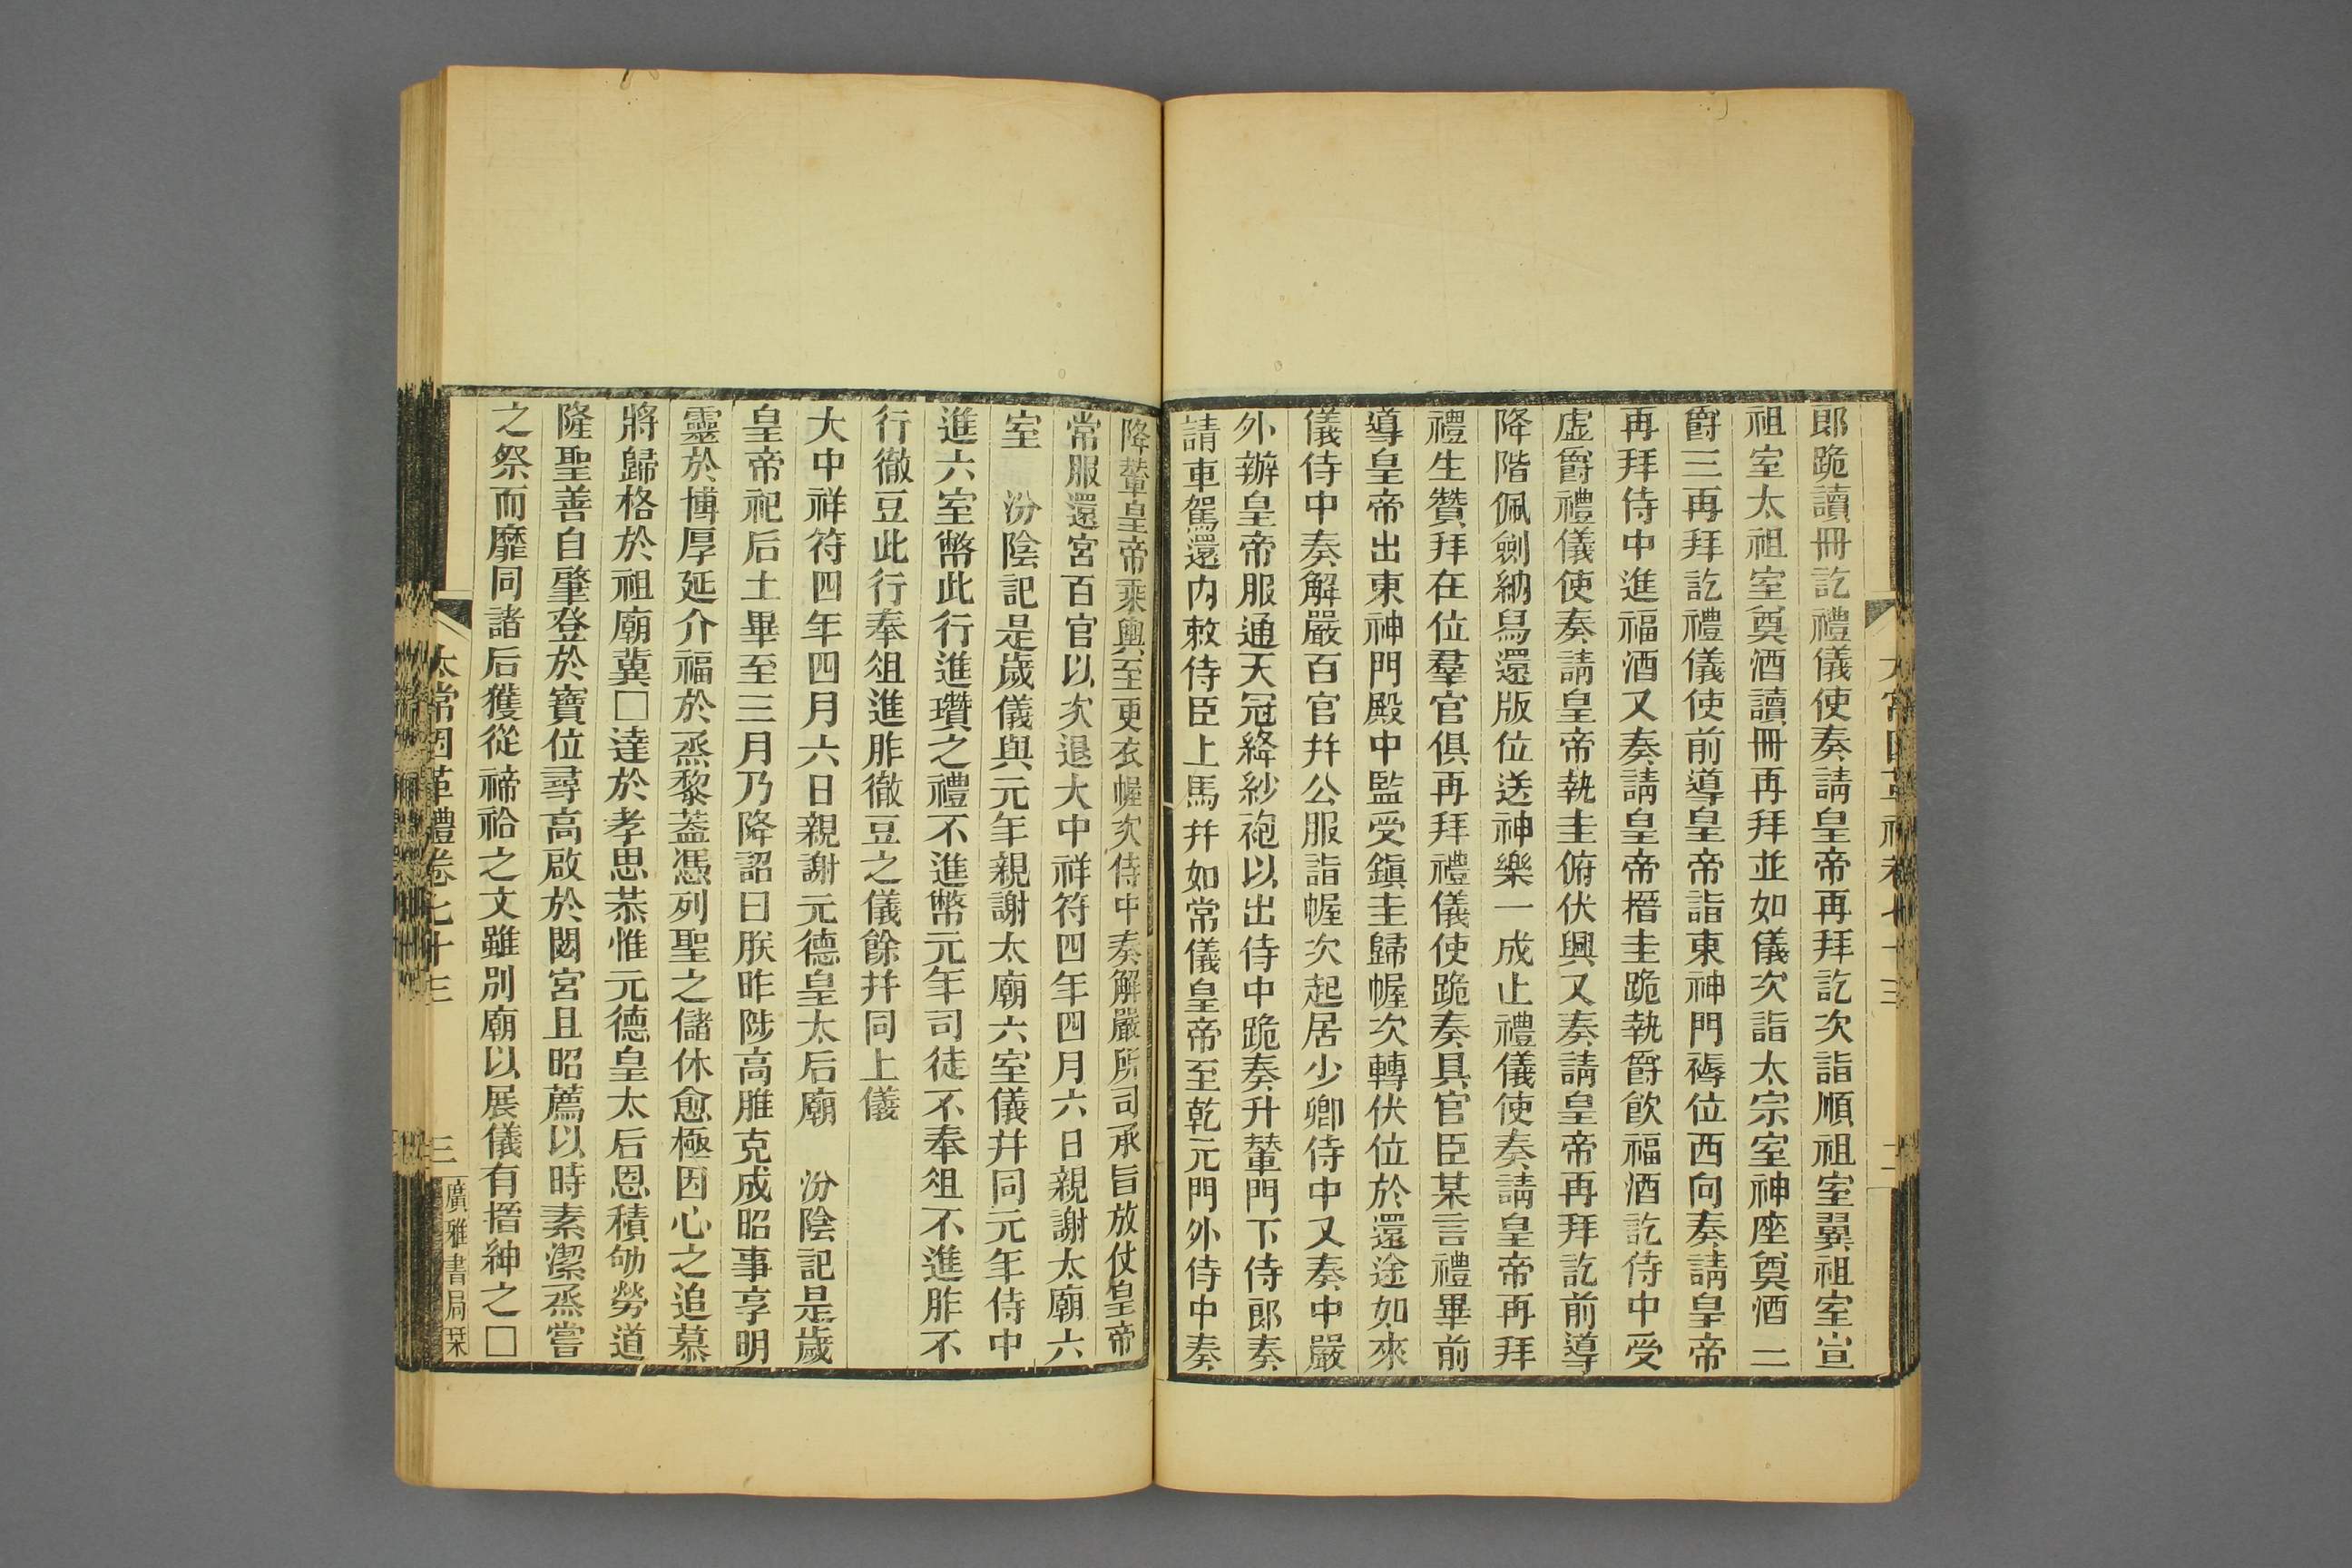 郎跪讀冊訖禮儀使奏請皇帝再拜訖次詣順祖室翼祖室宣
祖室太祖室奠酒讀冊再拜並如儀次詣太宗室神座奠酒二
爵三再拜訖禮儀使前導皇帝詣東神門褥位西向奏請皇帝
再拜侍中進福酒又奏請皇帝搢圭跪執爵飮福酒訖侍中受
虛爵禮儀使奏請皇帝執圭俯伏興又奏請皇帝再拜訖前導
降階佩劍納舄還版位送神樂一成止禮儀使奏請皇帝再拜
禮生贊拜在位羣官俱再拜禮儀使跪奏具官臣某言禮畢前
導皇帝出東神門殿中監受鎭圭歸幄次轉仗位於還途如來
儀侍中奏解嚴百官幷公服詣幄次起居少卿侍中又奏中嚴
外辦皇帝服通天冠絳紗袍以出侍中跪奏升輦門下侍郎奏
請車駕還內敕侍臣上馬幷如常儀皇帝至乾元門外侍中奏
降輦皇帝乘輿至更衣幄次侍中奏解嚴所司承旨放仗皇帝
常服還宮百官以次退大中祥符四年四月六日親謝太廟六
室　汾陰記是歲儀與元年親謝太廟六室儀幷同元年侍中
進六室幣此行進瓚之禮不進幣元年司徒不奉俎不進胙不
行徹豆此行奉俎進胙徹豆之儀餘幷同上儀
大中祥符四年四月六日親謝元德皇太后廟　汾陰記是歲
皇帝祀后土畢至三月乃降詔曰朕昨陟高脽克成昭事享明
靈於博厚延介福於烝黎葢憑列聖之儲休愈極因心之追慕
將歸格於祖廟冀□達於孝思恭惟元德皇太后恩積劬勞道
隆聖善自肇登於寶位尋高啟於閟宮且昭薦以時素潔烝嘗
之祭而靡同諸后獲從禘祫之文雖別廟以展儀有搢紳之□
太常因革禮卷七十三
三
廣雅書局栞